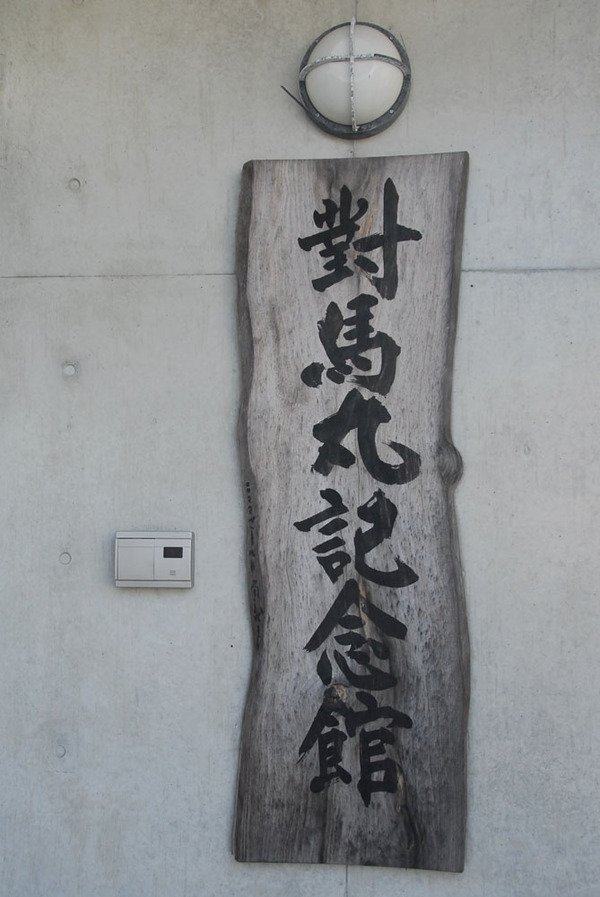 對馬丸記念館